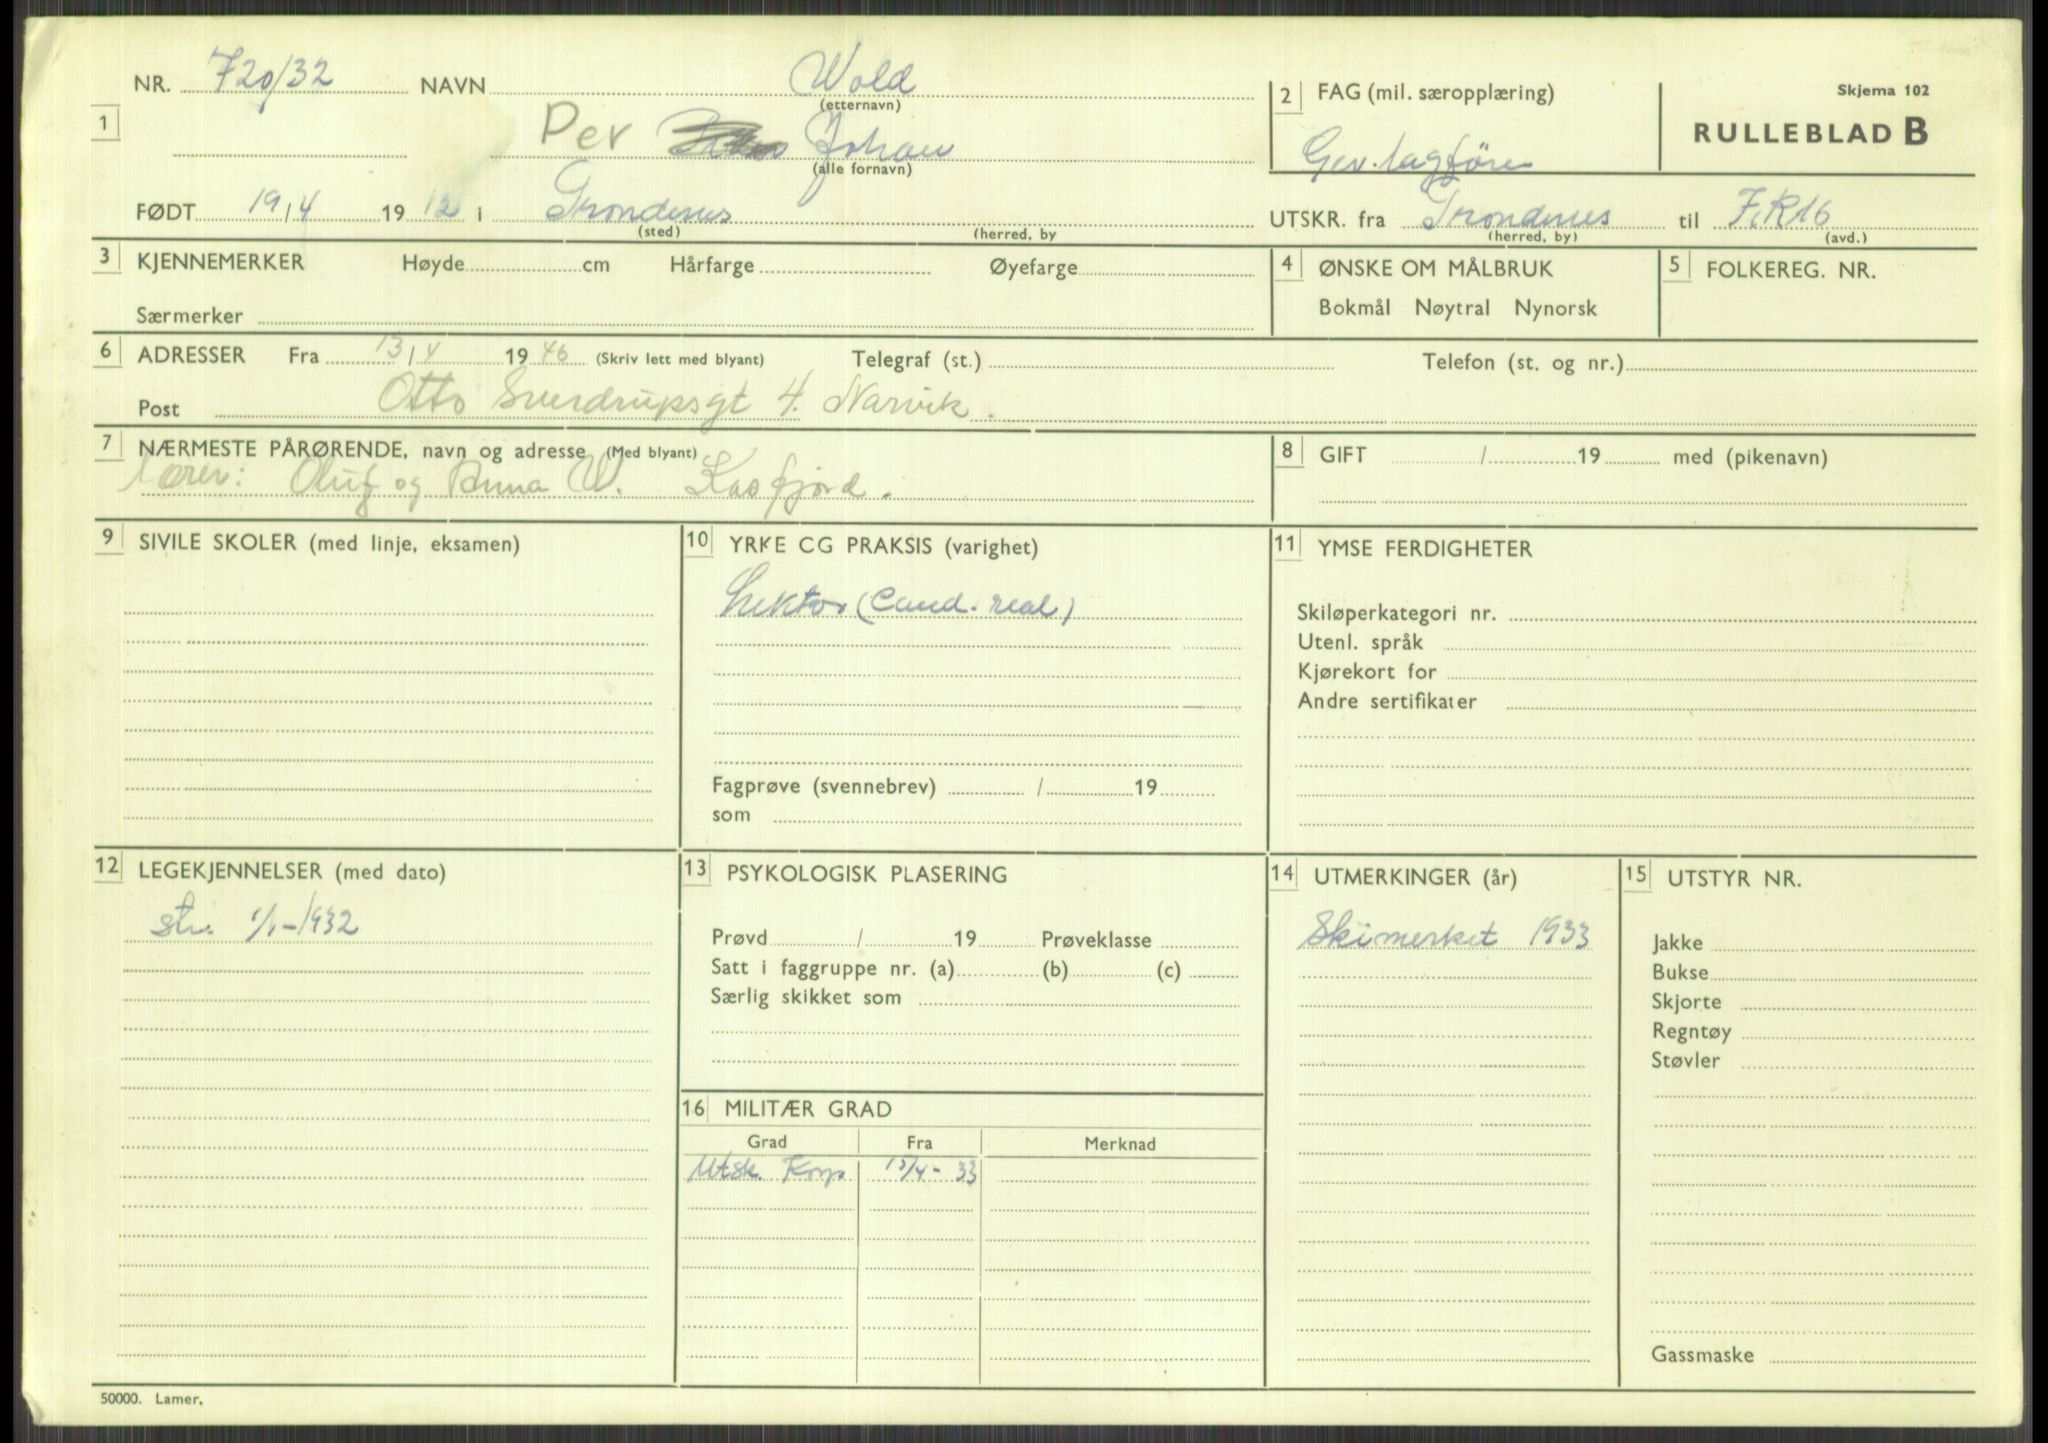 NR. 720/32 NAVN Wold
(etternavn)
1 Per Johan
(alle fornavn)
FØDT 19/4 1912 i Trondenes
(sted) (herred, by
2 FAG (mil. særopplæring)
Gev. lagfører
Skjema 102
RULLEBLAD B
UTSKR. fra Trondenes til I.R16
(herred, by) (avd.)
3 KJENNEMERKER Høyde cm Hårfarge Øyefarge
Særmerker
4 ØNSKE OM MÅLBRUK
Bokmål Nøytral Nynorsk
5 FOLKEREG. NR.
6 ADRESSER Fra 13/4 1946 (Skriv lett med blyant) Telegraf (st.) Telefon (st. og nr.)
Post Otto Sverdrupsgt 4. Narvik.
7 NÆRMESTE PÅRØRENDE, navn og adresse (Med blyant)
Oluf og Anna W. Kasfjord.
8 GIFT / 19 med (pikenavn)
9 SIVILE SKOLER (med linje, eksamen)
10 YRKE OG PRAKSIS (varighet)
Lektor (Cand. real)
Fagprøve (svennebrev) / 19
som
11 YMSE FERDIGHETER
Skiløperkategori nr.
Utenl. språk
Kjørekort for
Andre sertifikater
12 LEGEKJENNELSER (med dato)
str. 1/1-1932
13 PSYKOLOGISK PLASERING
Prøvd / 19 Prøveklasse
Satt i faggruppe nr. (a) (b) (c)
Særlig skikket som
14 UTMERKINGER (år)
Skimerket 1933
15 UTSTYR NR.
Jakke
Bukse
Skjorte
Regntøy
Støvler
Gassmaske
16 MILITÆR GRAD
Grad Fra Merknad
Utsk. Korp 15/4-33
50000. Lamer.